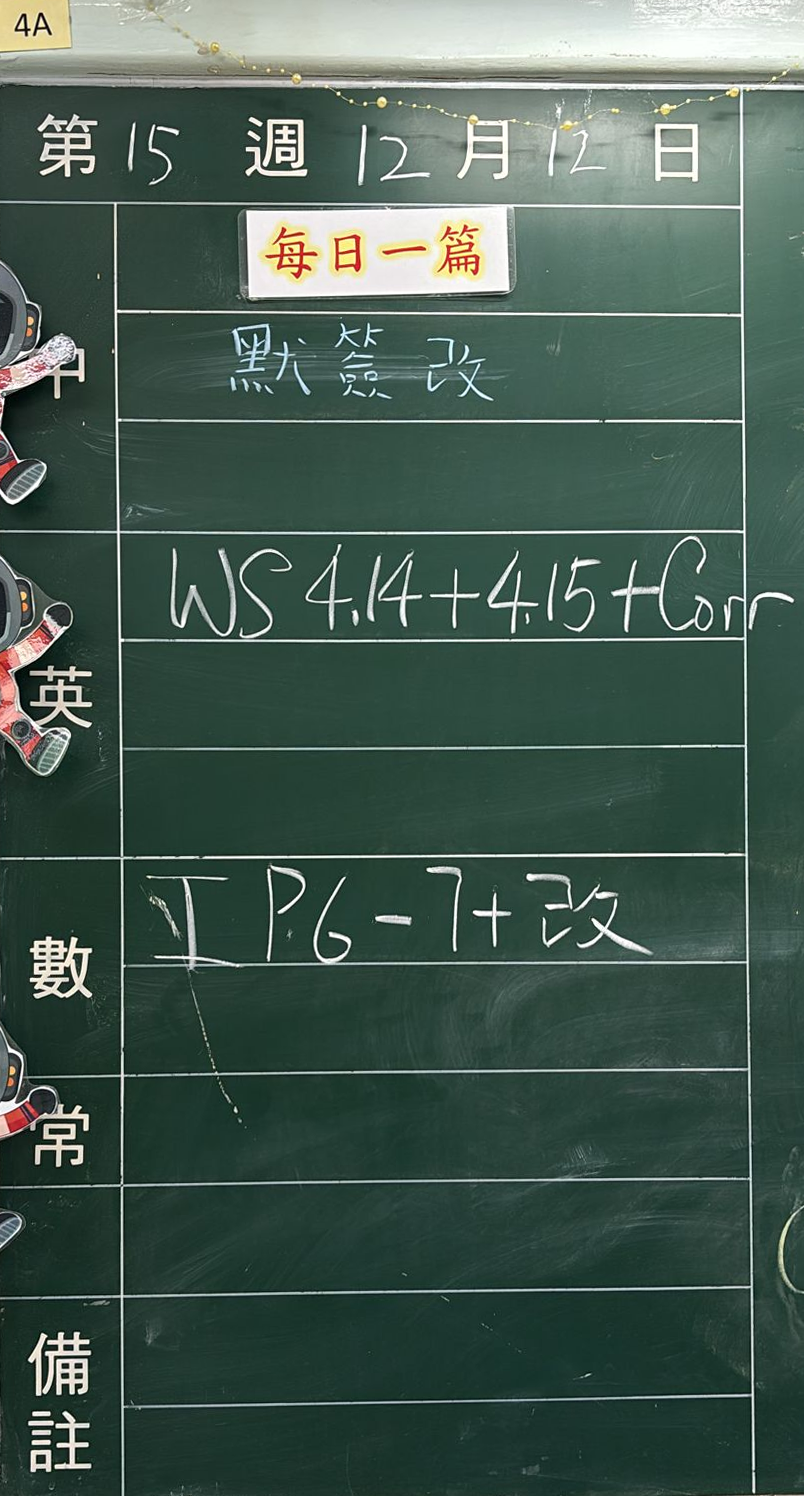 4A
第 15 週 12 月 12 日
每日一篇
中
默簽改
WS 4.14+4.15+Corr
英
工 P.6-7+改
數
常
備
註